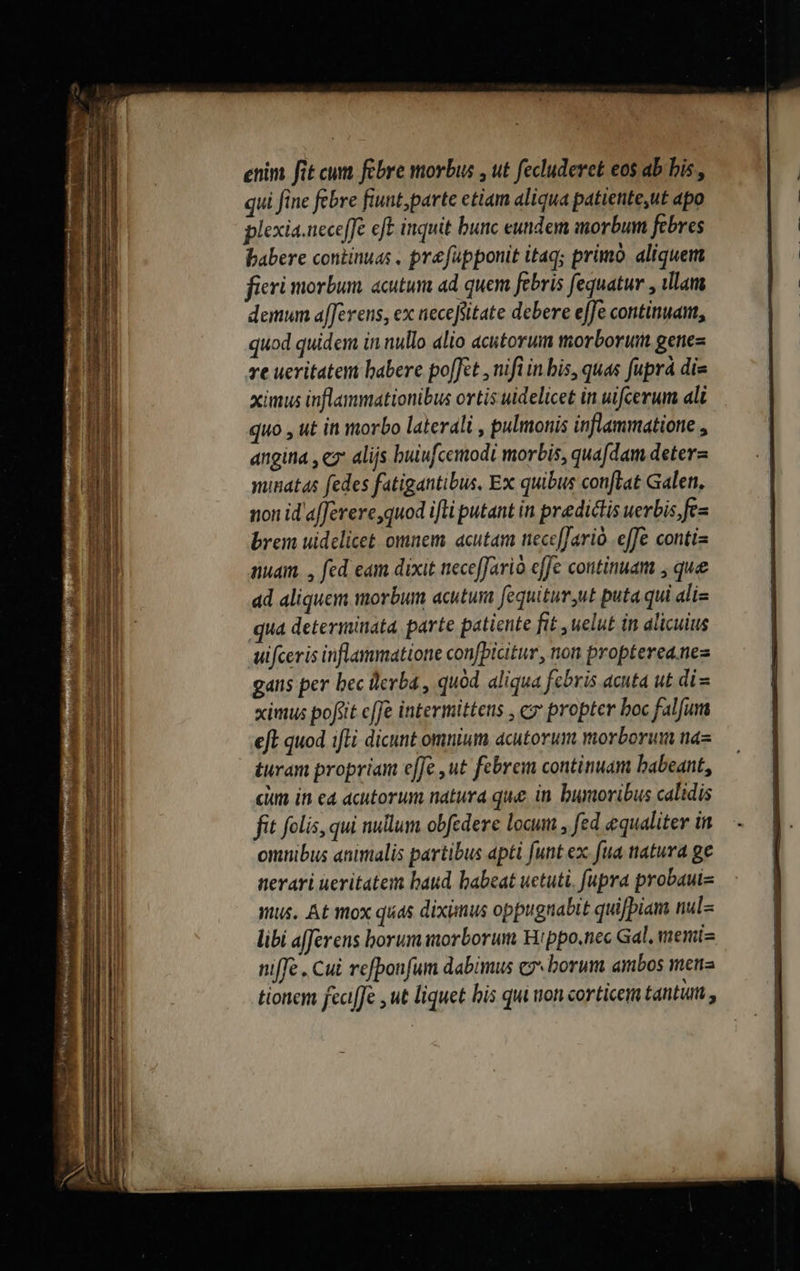 enim fit cum febre morbus , ut ſecluderet eos ab his ,
qui ſine febre fiunt,parte etiam aliqua patiente,ut apo
plexia.neceſſe eſt inquit hunc eundem morbum febres
habere continuas . præſupponit itaq; primò aliquem
fieri morbum acutum ad quem febris ſequatur , illam
demum aſſerens, ex neceſsitate debere eſſe continuam,
quod quidem in nullo alio acutorum morborum gene=
re ueritatem habere poſſet , niſi in his, quas ſuprà di=
ximus inflammationibus ortis uidelicet in uiſcerum ali
quo , ut in morbo laterali , pulmonis inflammatione ,
angina , & alijs huiuſcemodi morbis, quaſdam deter=
minatas ſedes fatigantibus. Ex quibus conſtat Galen.
non id aſſerere,quod iſti putant in prædictis uerbis,fe=
brem uidelicet omnem acutam neceſſariò eſſe conti=
nuam , ſed eam dixit neceſſariò eſſe continuam , quæ
ad aliquem morbum acutum ſequitur,ut puta qui ali=
qua determinata parte patiente fit , uelut in alicuius
uiſceris inflammatione conſpicitur, non propterea.ne=
gans per hec uerba , quòd aliqua febris acuta ut di=
ximus poſsit eſſe intermittens , & propter hoc falſum
eſt quod iſti dicunt omnium acutorum morborum na=
turam propriam eſſe , ut febrem continuam habeant,
cùm in ea acutorum natura quæ in humoribus calidis
fit ſolis, qui nullum obſedere locum , ſed æqualiter in
omnibus animalis partibus apti ſunt ex ſua natura ge
nerari ueritatem haud habeat uetuti ſupra probaui=
mus. At mox quas diximus oppugnabit quiſpiam nul=
libi aſſerens horum morborum Hippo.nec Gal. memi=
niſſe . Cui reſponſum dabimus & horum ambos men=
tionem feciſſe , ut liquet his qui non corticem tantum ,